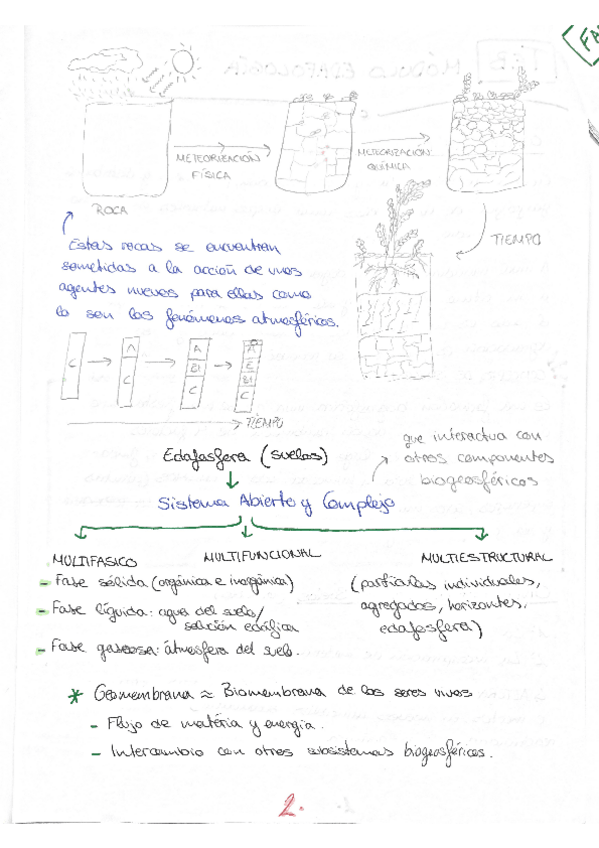 METEORIZACIÓN
FÍSICA
METEORIZACIÓN
QUÍMICA
ROCA
TIEMPO
Estas rocas se encuentran
sometidas a la acción de unos
agentes nuevos para ellas como
lo son los fenómenos atmosféricos.
C
A
C
A
B1
C
A
E
B1
C
TIEMPO
Edafosfera (suelos)
que interactua con
otros componentes
biogeosféricos
Sistema Abierto y Complejo
MULTIFASICO
MULTIFUNCIONAL
MULTIESTRUCTURAL
- Fase sólida (orgánica e inorgánica)
- Fase líquida: agua del suelo/
solución edáfica
- Fase gaseosa: átmosfera del suelo.
(partículas individuales,
agregados, horizontes,
edafosfera)
* Geomembrana ≈ Biomembrana de los seres vivos
- Flujo de matéria y energia.
- Intercambio con otros subsistemas biogeosféricos.
2.